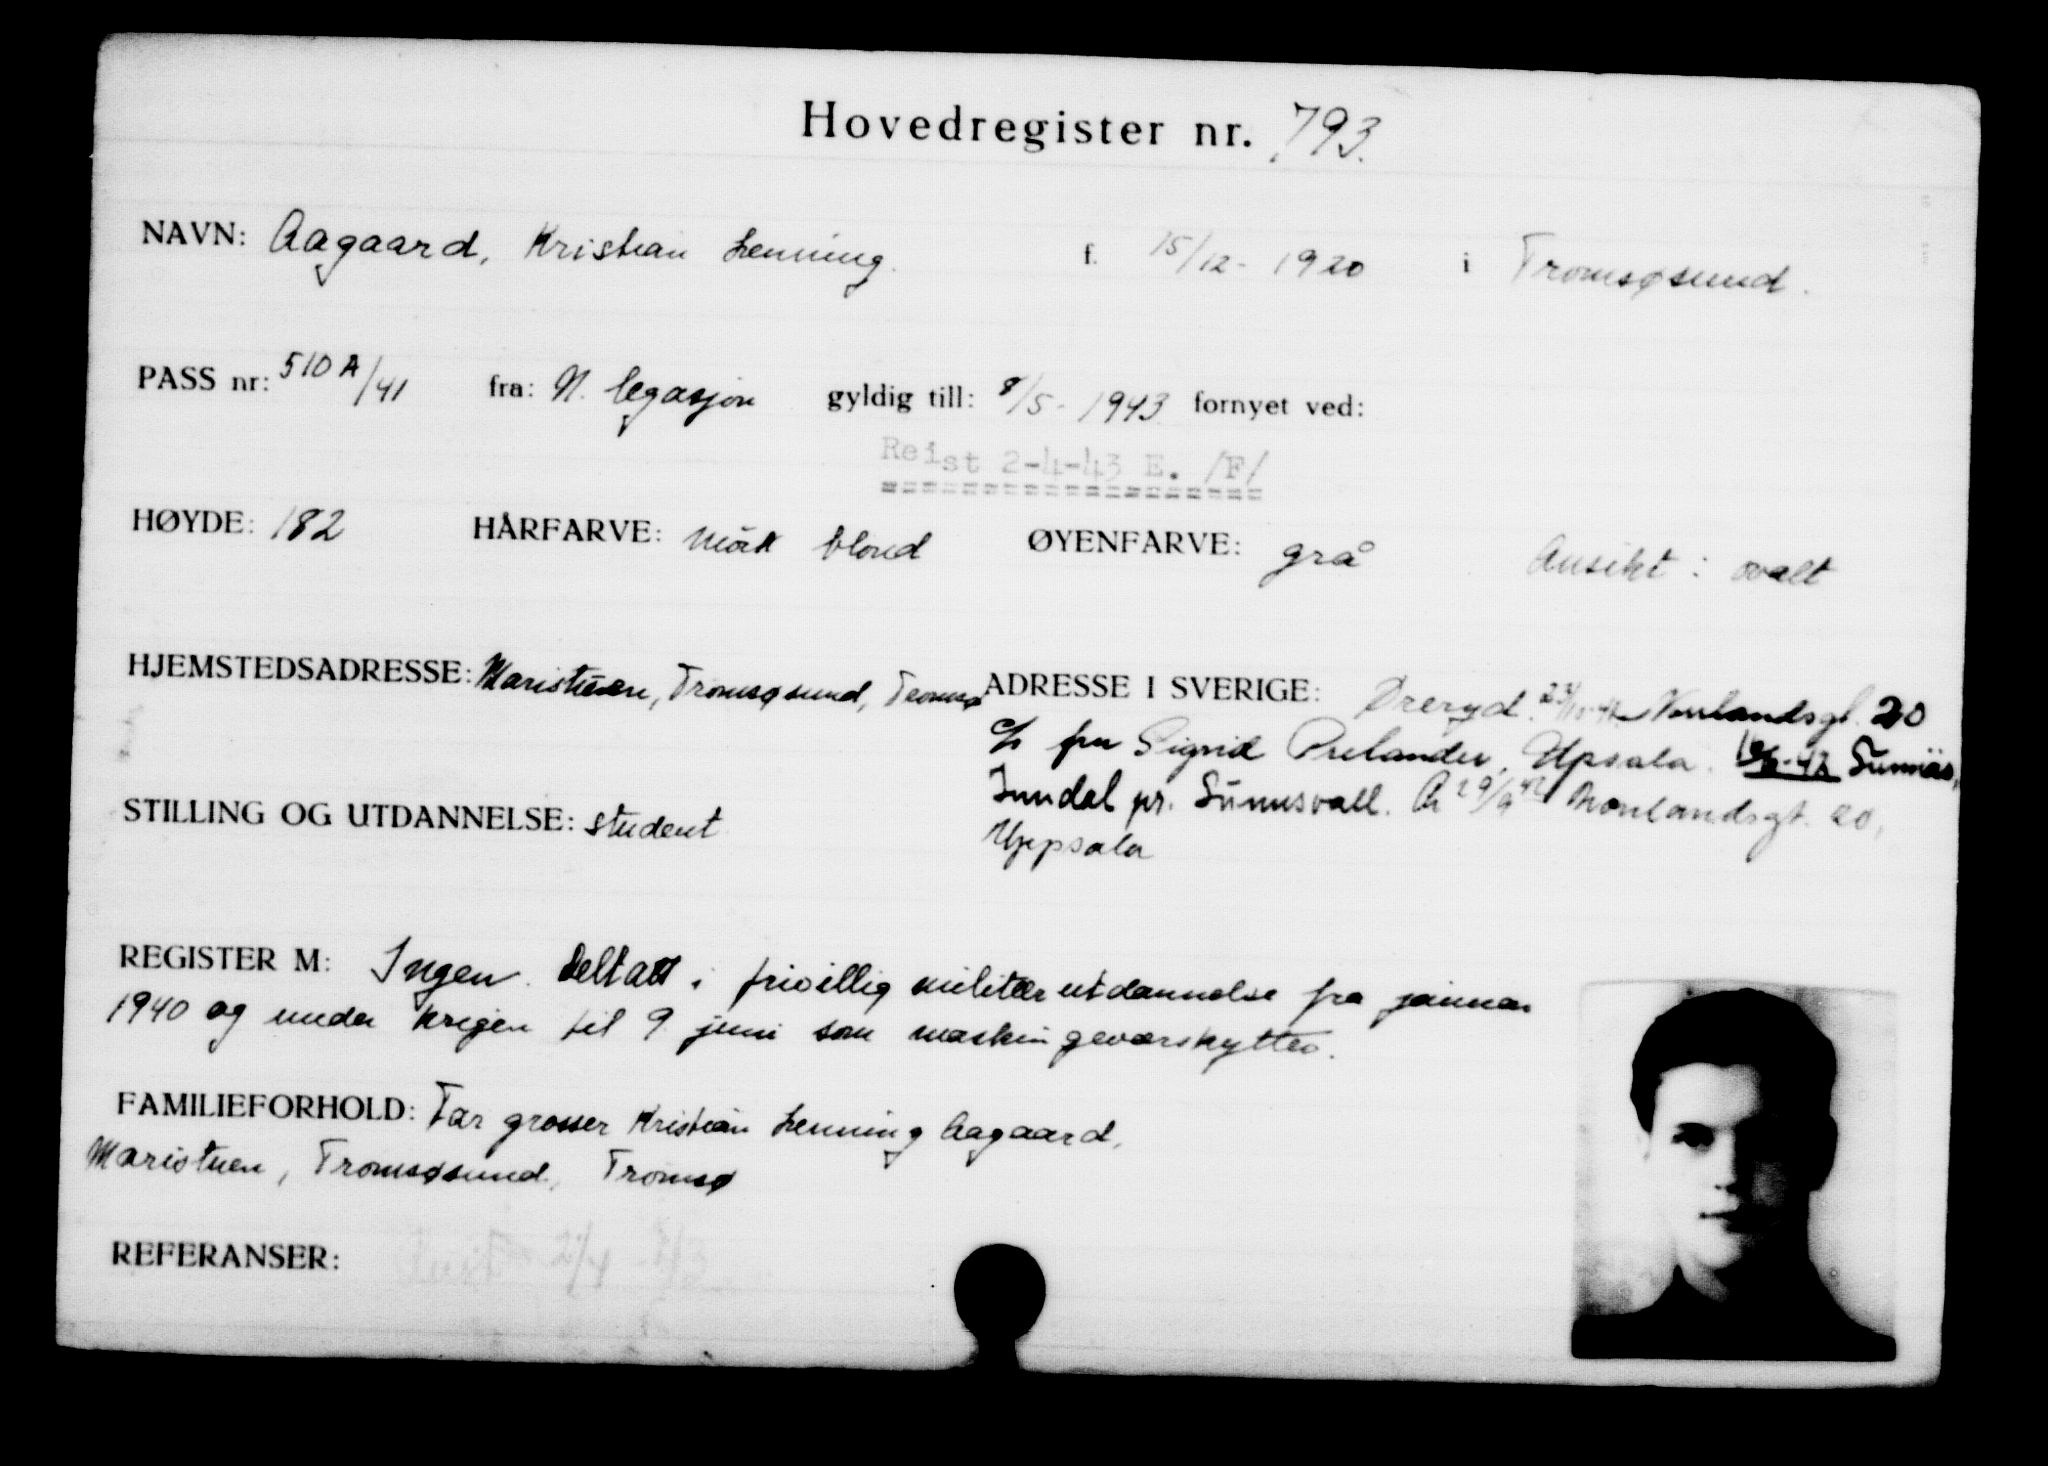 Hovedregister nr. 793.
NAVN: Aagaard, Kristian Henning. f. 15/12- 1920 i Tromsøsund.
PASS nr: 510 A/41 fra: N. legasjon gyldig till: 8/5- 1943 fornyet ved:
Reist 2-4-43 E. /F/
HØYDE: 182 HÅRFARVE: mörk blond ØYENFARVE: grå Ansikt : ovalt
HJEMSTEDSADRESSE: Maristuen, Tromsøsund, Tromsø
ADRESSE I SVERIGE: Öreryd. Norrlandsgt. 20
c/o fru Sigrid Upsala. Sunnäs,
Indal pr. Sundsvall. 29/9 42 Norrlandsgt. 20,
Uppsala
STILLING OG UTDANNELSE: student
REGISTER M: Ingen. Deltatt i frivillig militær utdannelse fra januar
1940 og under krigen til 9 juni som maskingeværskytter.
FAMILIEFORHOLD: Far grosser Kristian Henning Aagaard,
Maristuen, Tromsøsund, Tromsø
REFERANSER: Reist 2/4